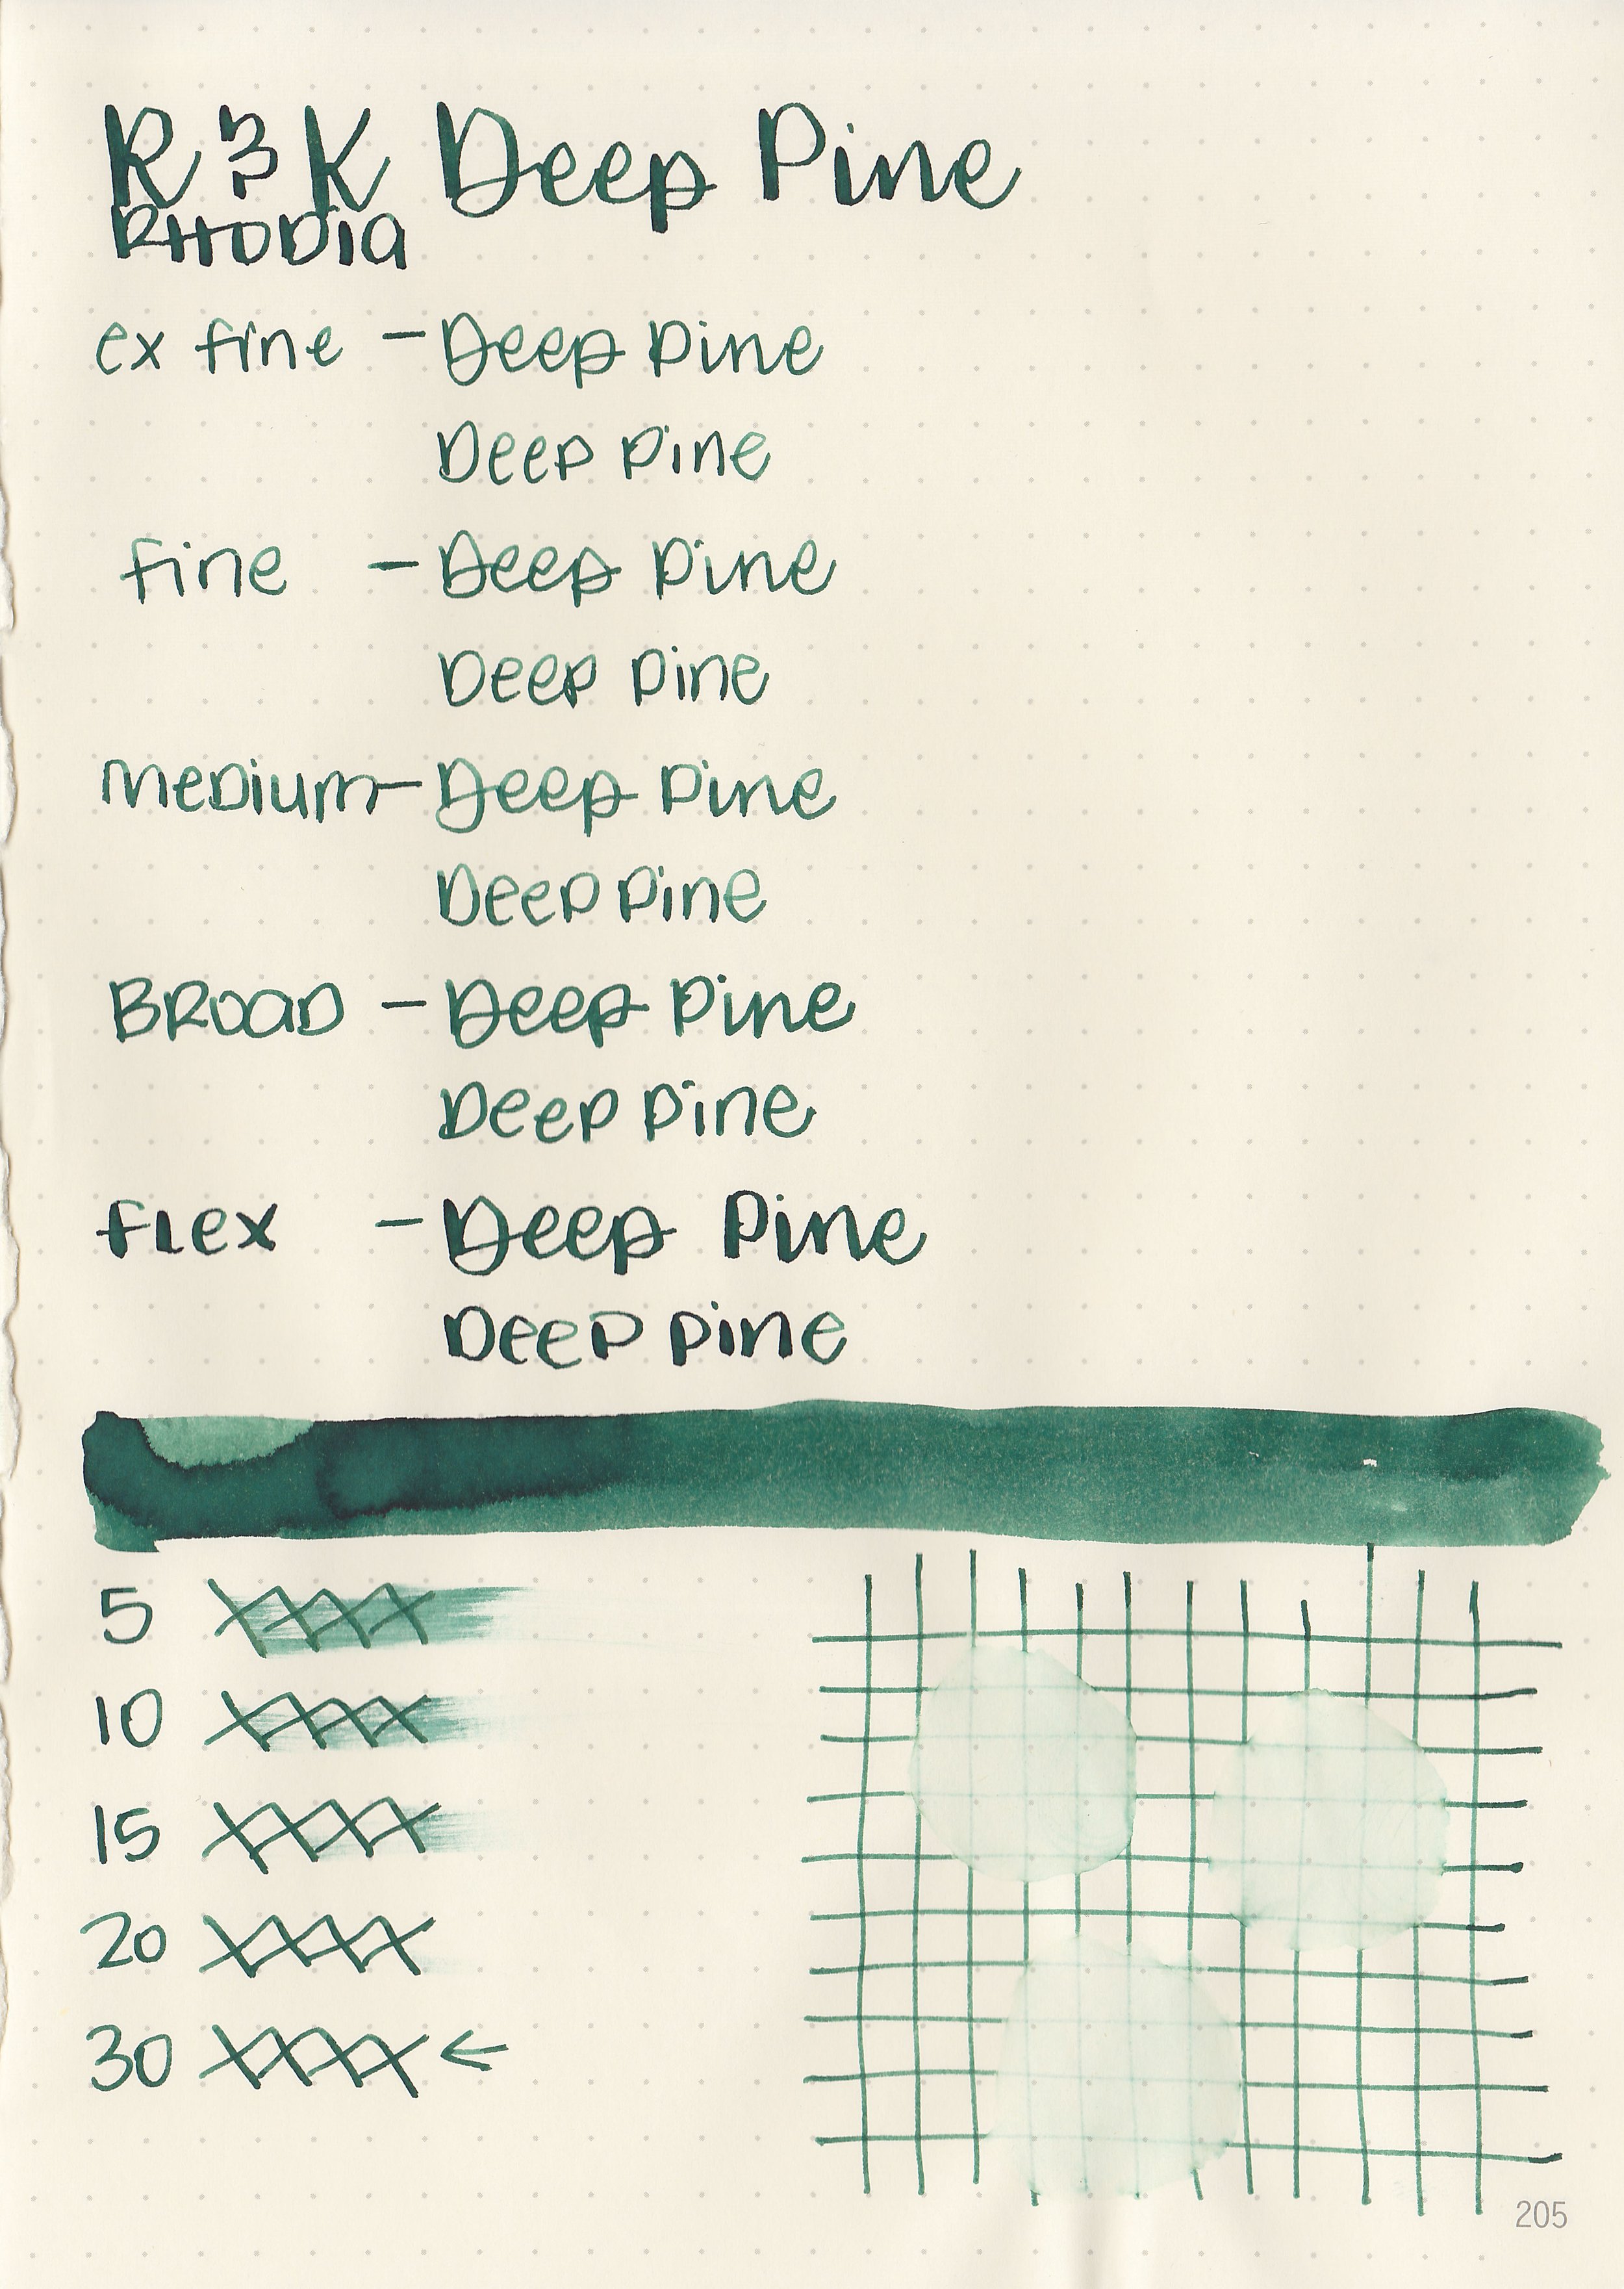 R & K Deep Pine
RHODIA
ex fine - Deep Pine
Deep Pine
fine - Deep Pine
Deep Pine
MeDium - Deep Pine
Deep Pine
BROAD - Deep Pine
Deep Pine
flex - Deep Pine
Deep Pine
5 XXXX
10 XXXX
15 XXXX
20 XXXX
30 XXXX ←
205